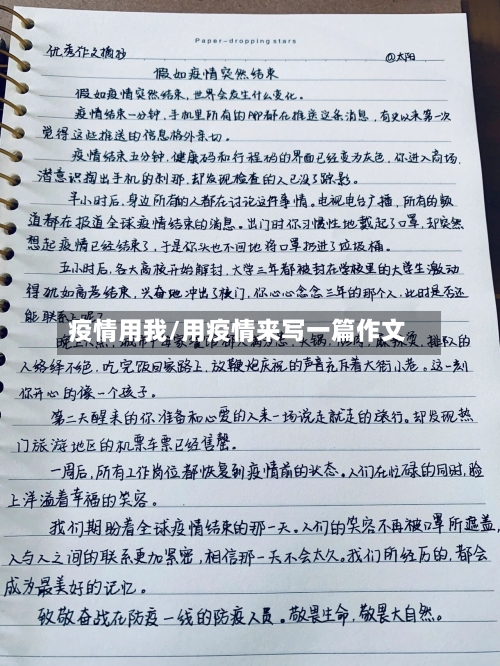 Paper-dropping stars
优秀作文摘抄 @太阳
假如疫情突然结束
假如疫情突然结束,世界会发生什么变化。
疫情结束一分钟,手机里所有的APP都在推送这条消息,有史以来第一次
觉得这些推送的信息格外亲切。
疫情结束五分钟,健康码和行程码的界面已经变为灰色,你进入商场,
潜意识掏出手机的刹那,却发现检查的人已没了踪影。
半小时后,身边所有的人都在讨论这件事情。电视电台广播,所有的频
道都在报道全球疫情结束的消息。出门时你习惯性地戴起了口罩,却突然
想起疫情已经结束了,于是你头也不回地将口罩扔进了垃圾桶。
五小时后,各大高校开始解封,大学三年都被封在学校里的大学生激动
得犹如高考结束,兴奋地冲出了校门,你心心念念三年的那个人,此时是否还
能联系上呢?
疫情用我/用疫情来写一篇作文
晚上 火锅 排队的
人络绎不绝,吃完饭回家路上,放鞭炮庆祝的声音充斥着大街小巷。这一刻
你开心的像一个孩子。
第二天醒来的你准备和心爱的人来一场说走就走的旅行。却发现热
门旅游地区的机票车票已经售罄。
一周后,所有工作岗位都恢复到疫情前的状态。人们在忙碌的同时,脸
上洋溢着幸福的笑容。
我们期盼着全球疫情结束的那一天。人们的笑容不再被口罩所遮盖,
人与人之间的联系更加紧密,相信那一天不会太久。我们所经历的,都会
成为最美好的记忆。
致敬奋战在防疫一线的防疫人员。敬畏生命,敬畏大自然。